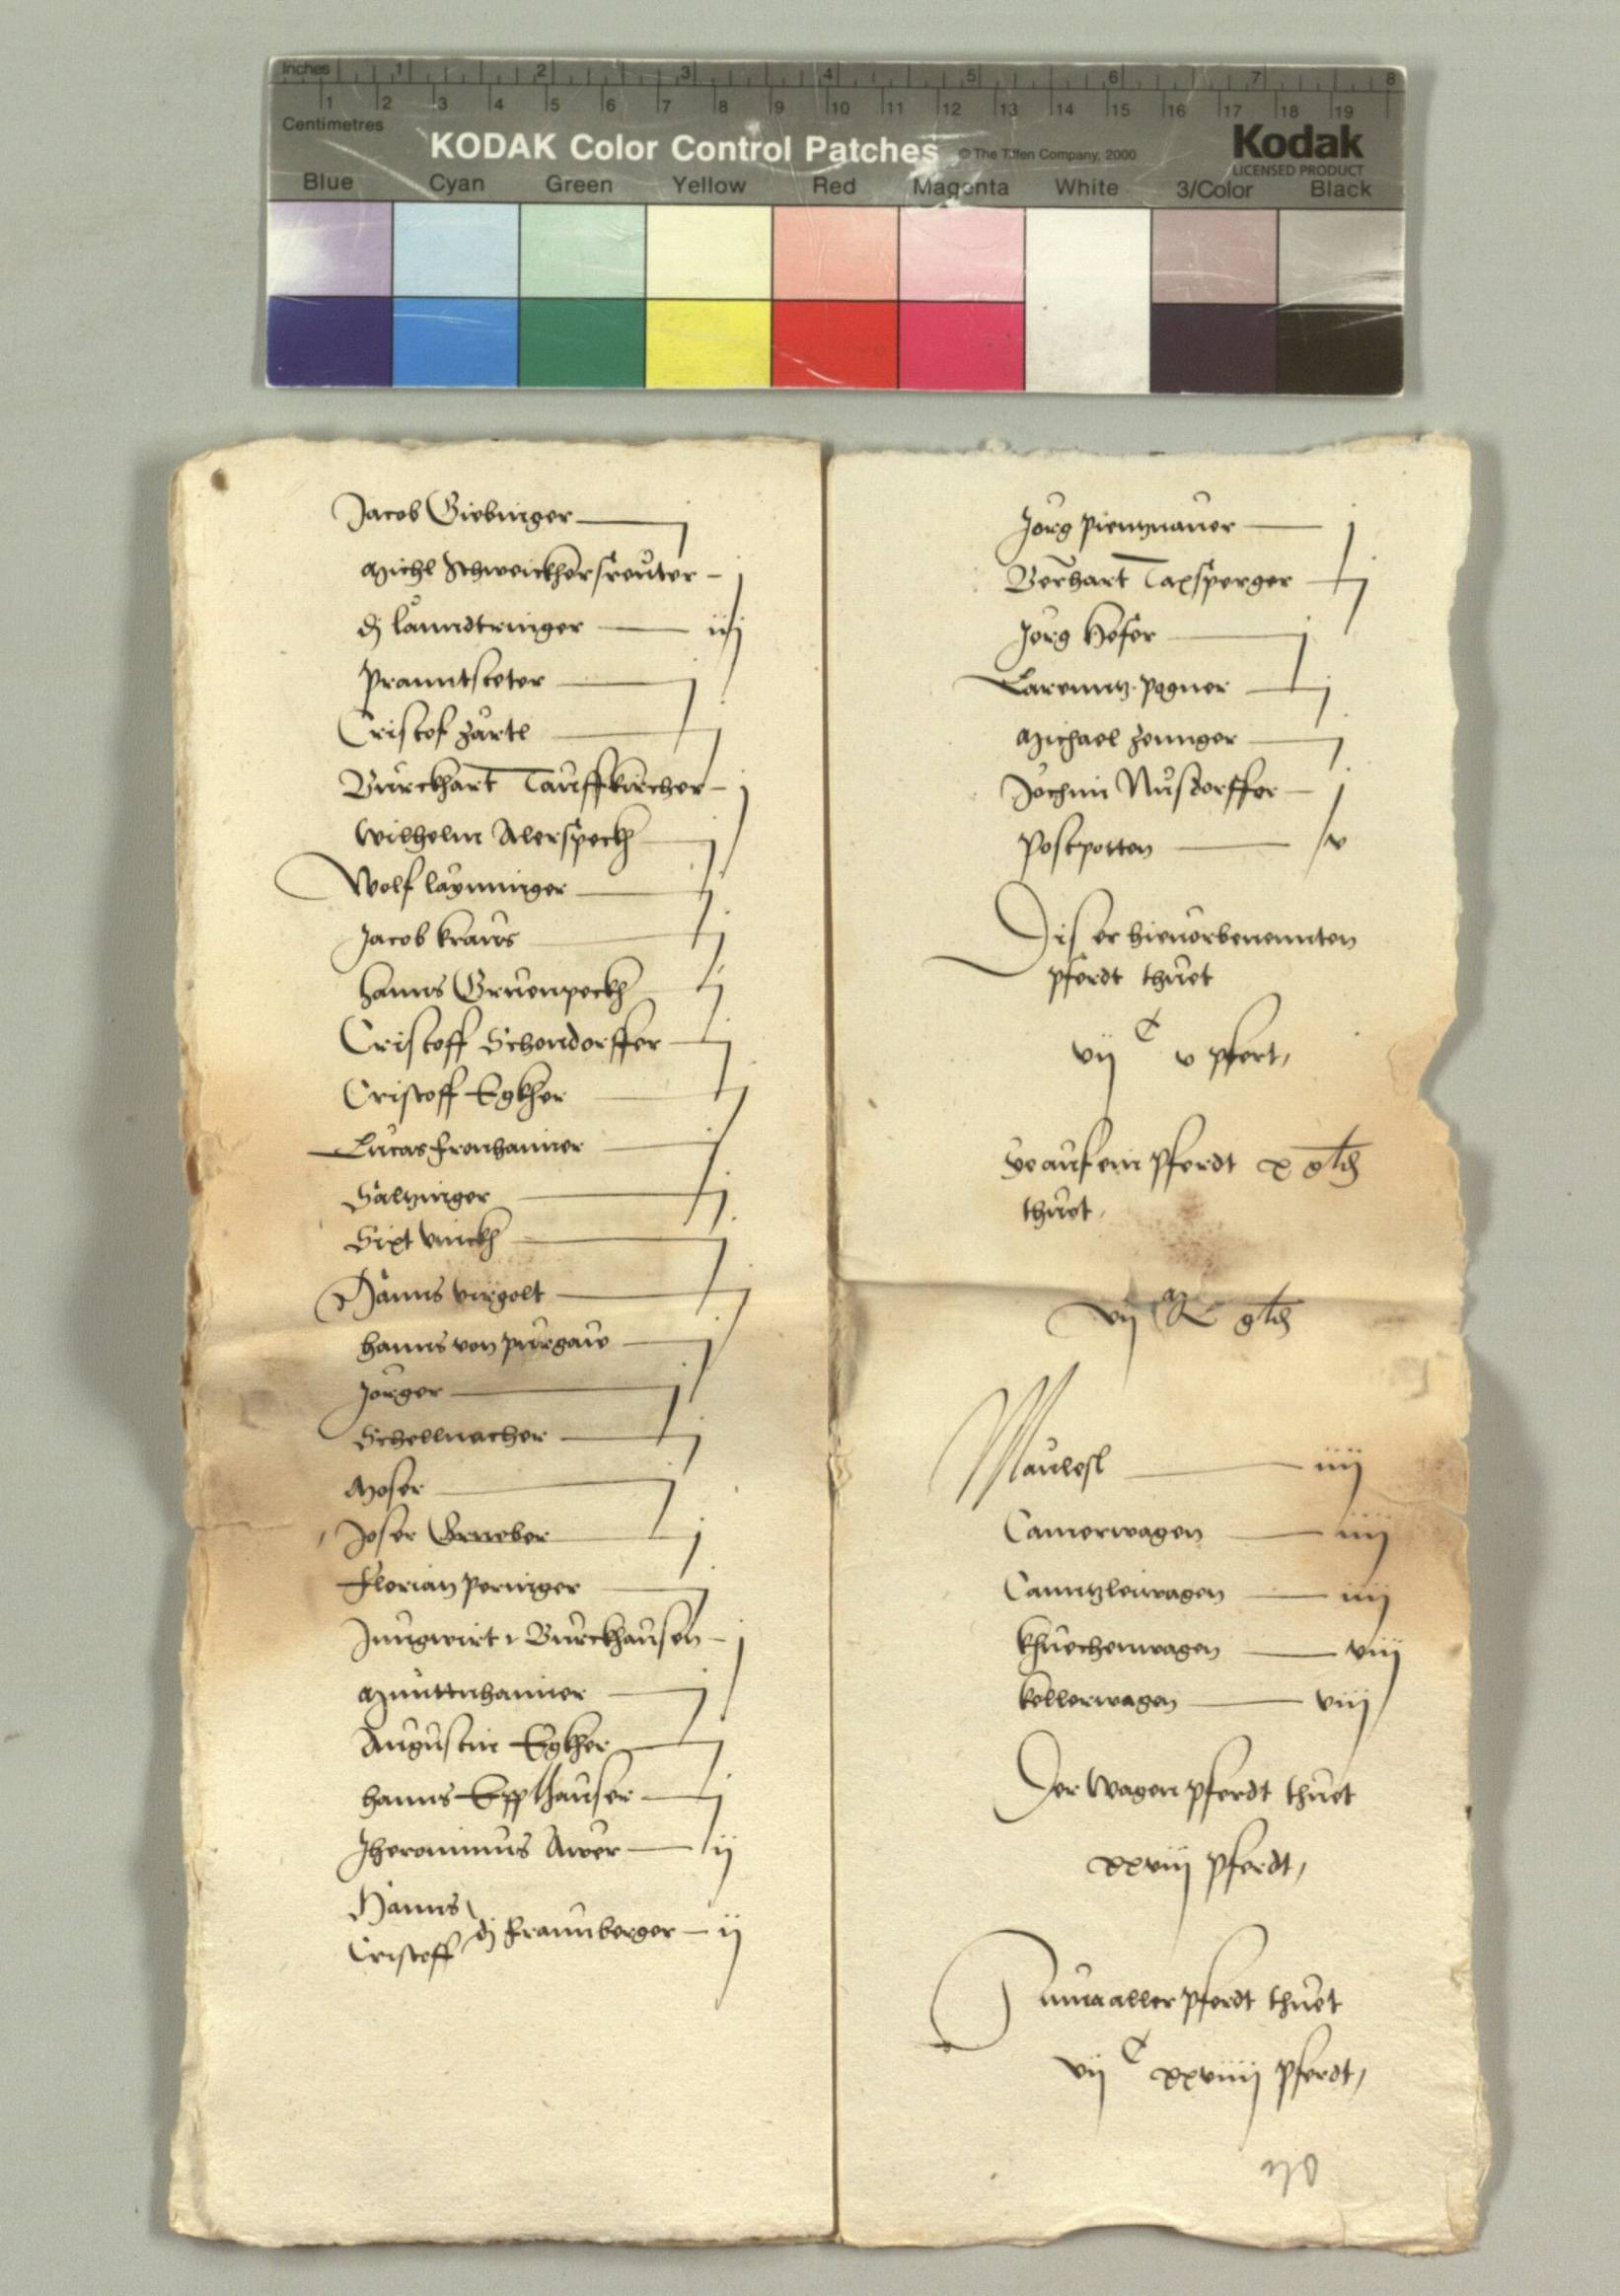 Inches 1 2 3 4 5 6 7 8
1 2 3 4 5 6 7 8 9 10 11 12 13 14 15 16 17 18 19
Centimetres
KODAK Color Control Patches © The Tiffen Company, 2000 Kodak
LICENSED PRODUCT
Blue Cyan Green Yellow Red Magenta White 3/Color Black
Jacob Giebinger j
Michl Schweickhersreuter j
dj Lanndtringer iij
Pranntsteter j
Cristof Zärtl j
Burckhart Tauffkircher j
Wilhelm Alerspeckh j
Wolf Layminger j
Jacob Kraus j
Hanns Gruenpeckh j
Cristoff Schondorffer j
Cristoff Egkher j
Lucas Fronhamer j
Saltzinger j
Sixt j
Hanns Virgolt j
Hanns von Purgaw j
Jörger j
Schellnacher j
Moser j
Joser Grueber j
Florian Perniger j
Jungwirt z Burckhausen j
j
Augustin Egkher j
Hanns Epplhauser j
Jheronimus Awer ij
Hanns
Cristoff dj Fraunberger ij
Jorg Pientznauer j
Bernhart Taxsperger j
Jorg Hofer j
Larenntz Pogner j
Michael Zennger j
Jochim Nusdorffer j
Postpotten v
Diser hievorbenennten
pferdt thuet
vij C v pfert,
Ye auf ein pferdt x gld
thuet,
vij M L gld
Maulesl iiij
Camerwagen iiij
Canntzleiwagen iiij
Khuechenwagen viij
Kellerwagen viij
Der Wagen pferdt thuet
xxviij pferdt,
Suma aller pferdt thuet
vij C xxxviiij pferdt,